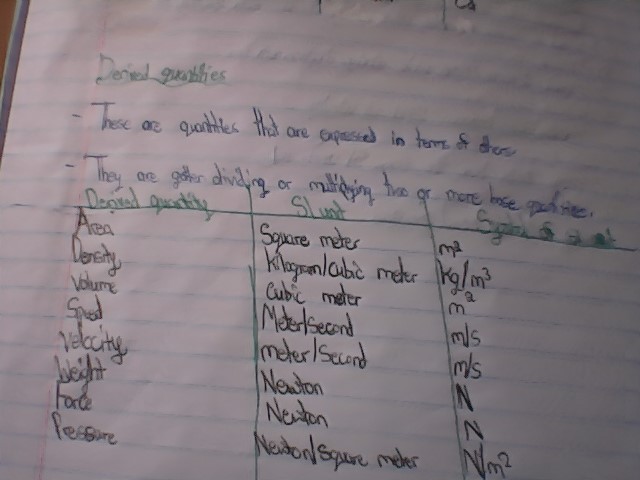 Derived quantities
- These are quantities that are expressed in terms of others
- They are gotten dividing or multiplying two or more base quantities.
Derived quantity SI unit Symbol
Area Square meter m²
Density Kilogram/cubic meter Kg/m³
Volume Cubic meter m
Speed Meter/Second m/s
Velocity meter/Second m/s
Weight Newton N
Force Newton N
Pressure Newton/Square meter N/m²